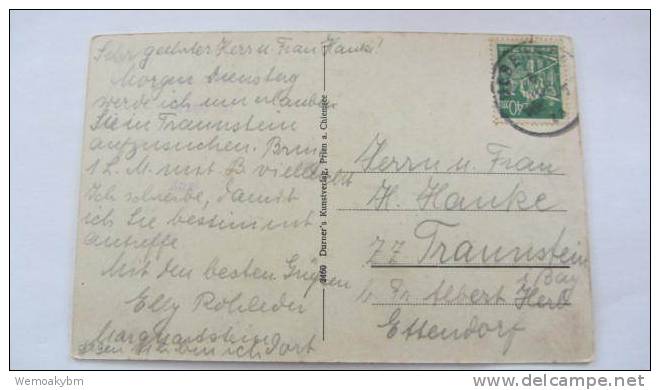 Sehr geehrter Herr u. Frau Hanke!
Morgen Dienstag
werde ich mir erlauben
Sie in Traunstein
aufzusuchen.
Ich schreibe, damit
ich Sie bestimmt
antreffe
Mit den besten Grüßen
Elly Rohleder
Marquartstein
ich dort
2460 Durner's Kunstverlag, Prien a. Chiemsee
40
Herrn u. Frau
H. Hanke
zz Traunstein
Albert
Ettendorf
Wemoakybm
www.delcampe.net